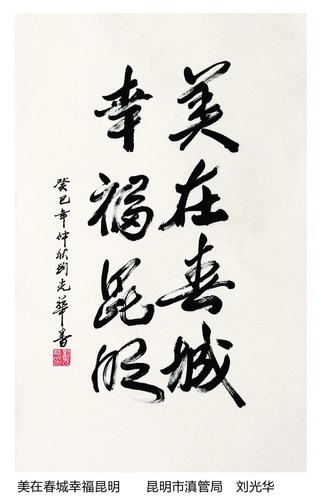 美在春城
幸福昆明
癸巳年仲秋刘光华书
美在春城幸福昆明 昆明市滇管局 刘光华